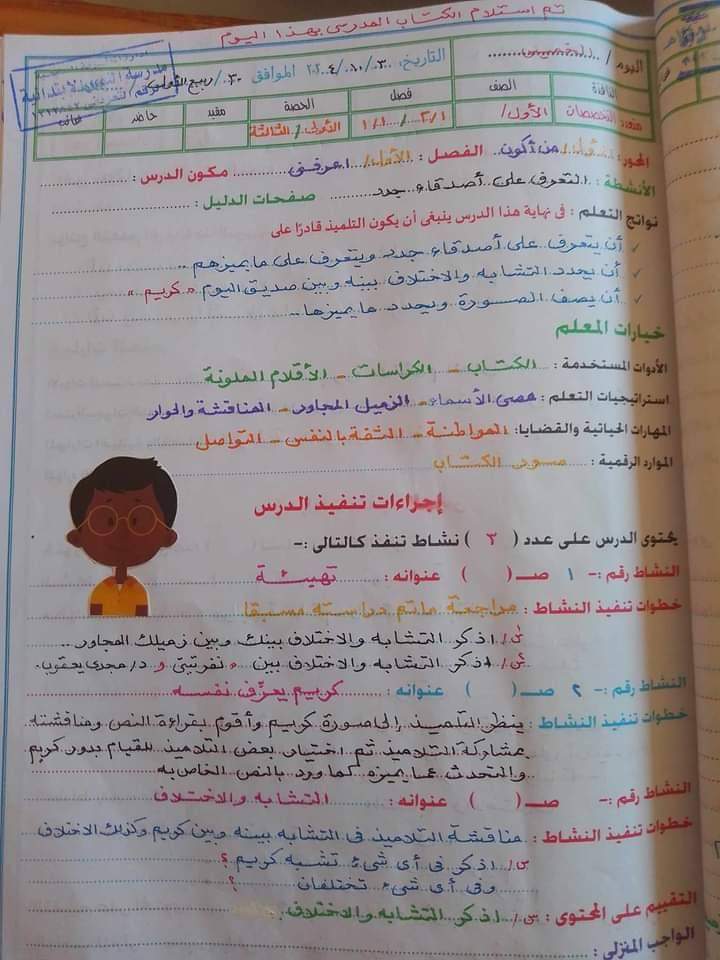 تم استلام الكتاب المدرسى بهذا اليوم
اليوم /
التاريخ: ٣٠/١٠/٢٠٢٤ الموافق ٣٠/ ربيع
المادة الصف فصل الحصة مقيد حاضر غائب
متعدد التخصصات الأول/ ٢/١ ١/١ الأولى/ الثالثة
المحور: من أكون الفصل: الأول/ اعرفنى مكون الدرس:
الأنشطة: التعرف على أصدقاء جدد صفحات الدليل:
نواتج التعلم: فى نهاية هذا الدرس ينبغى أن يكون التلميذ قادرًا على
✓ أن يتعرف على أصدقاء جدد ويتعرف على ما يميزهم
✓ أن يحدد التشابه والاختلاف بينه وبين صديق اليوم "كريم"
✓ أن يصف الصورة ويحدد ما يميزها
خيارات المعلم
الأدوات المستخدمة: الكتاب - الكراسات - الأقلام الملونة
استراتيجيات التعلم: عصى الأسماء - الزميل المجاور - المناقشة والحوار
المهارات الحياتية والقضايا: المواطنة - الثقة بالنفس - التواصل
الموارد الرقمية: صور الكتاب
إجراءات تنفيذ الدرس
يحتوى الدرس على عدد ( ٣ ) نشاط تنفذ كالتالى:-
النشاط رقم:- ١ صـ ( ) عنوانه: تهيئة
خطوات تنفيذ النشاط: مراجعة ماتم دراسته مسبقا
س/ اذكر التشابه والاختلاف بينك وبين زميلك المجاور
س/ اذكر التشابه والاختلاف بين "نفرتيتى و د/مجدى يعقوب
النشاط رقم:- ٢ صـ ( ) عنوانه: كريم يعرِّف نفسه
خطوات تنفيذ النشاط: ينظر التلميذ إلى صورة كريم وأقوم بقراءة النص ومناقشته
بمشاركة التلاميذ ثم اختيار بعض التلاميذ للقيام بدور كريم
والتحدث عما يميزه كما ورد بالنص الخاص به
النشاط رقم:- صـ ( ) عنوانه: التشابه والاختلاف
خطوات تنفيذ النشاط: مناقشة التلاميذ فى التشابه بينه وبين كريم وكذلك الاختلاف
س/ اذكر فى أى شىء تشبه كريم؟
وفى أى شىء تختلفان؟
التقييم على المحتوى: س/ اذكر التشابه والاختلاف
الواجب المنزلى: